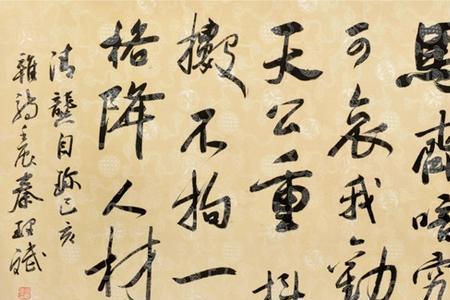 馬齊喑究
可哀我勸
天公重抖
擻不拘一
格降人材
清龔自珍己亥
雜詩壬辰秦理斌